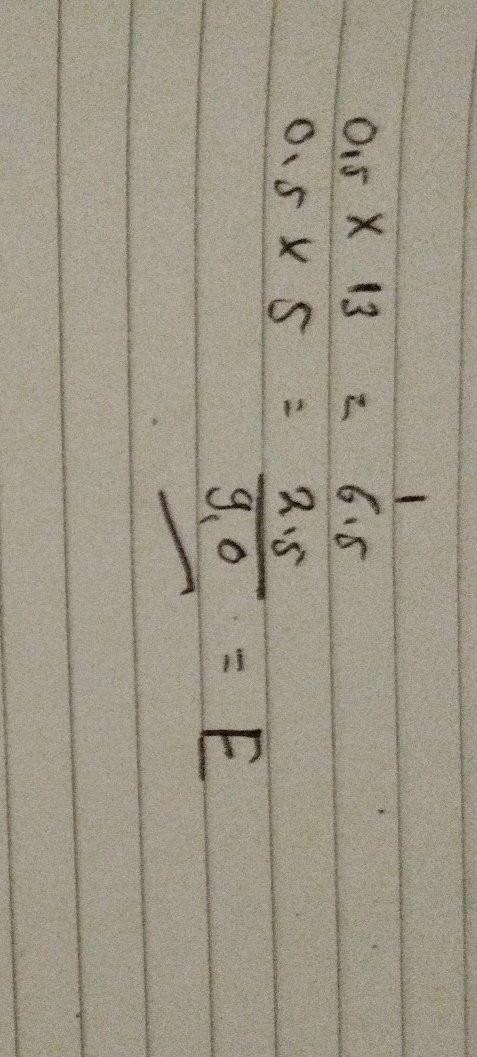 1
0,5 x 13 = 6.5
0.5 x 5 = 2.5
9,0 = E